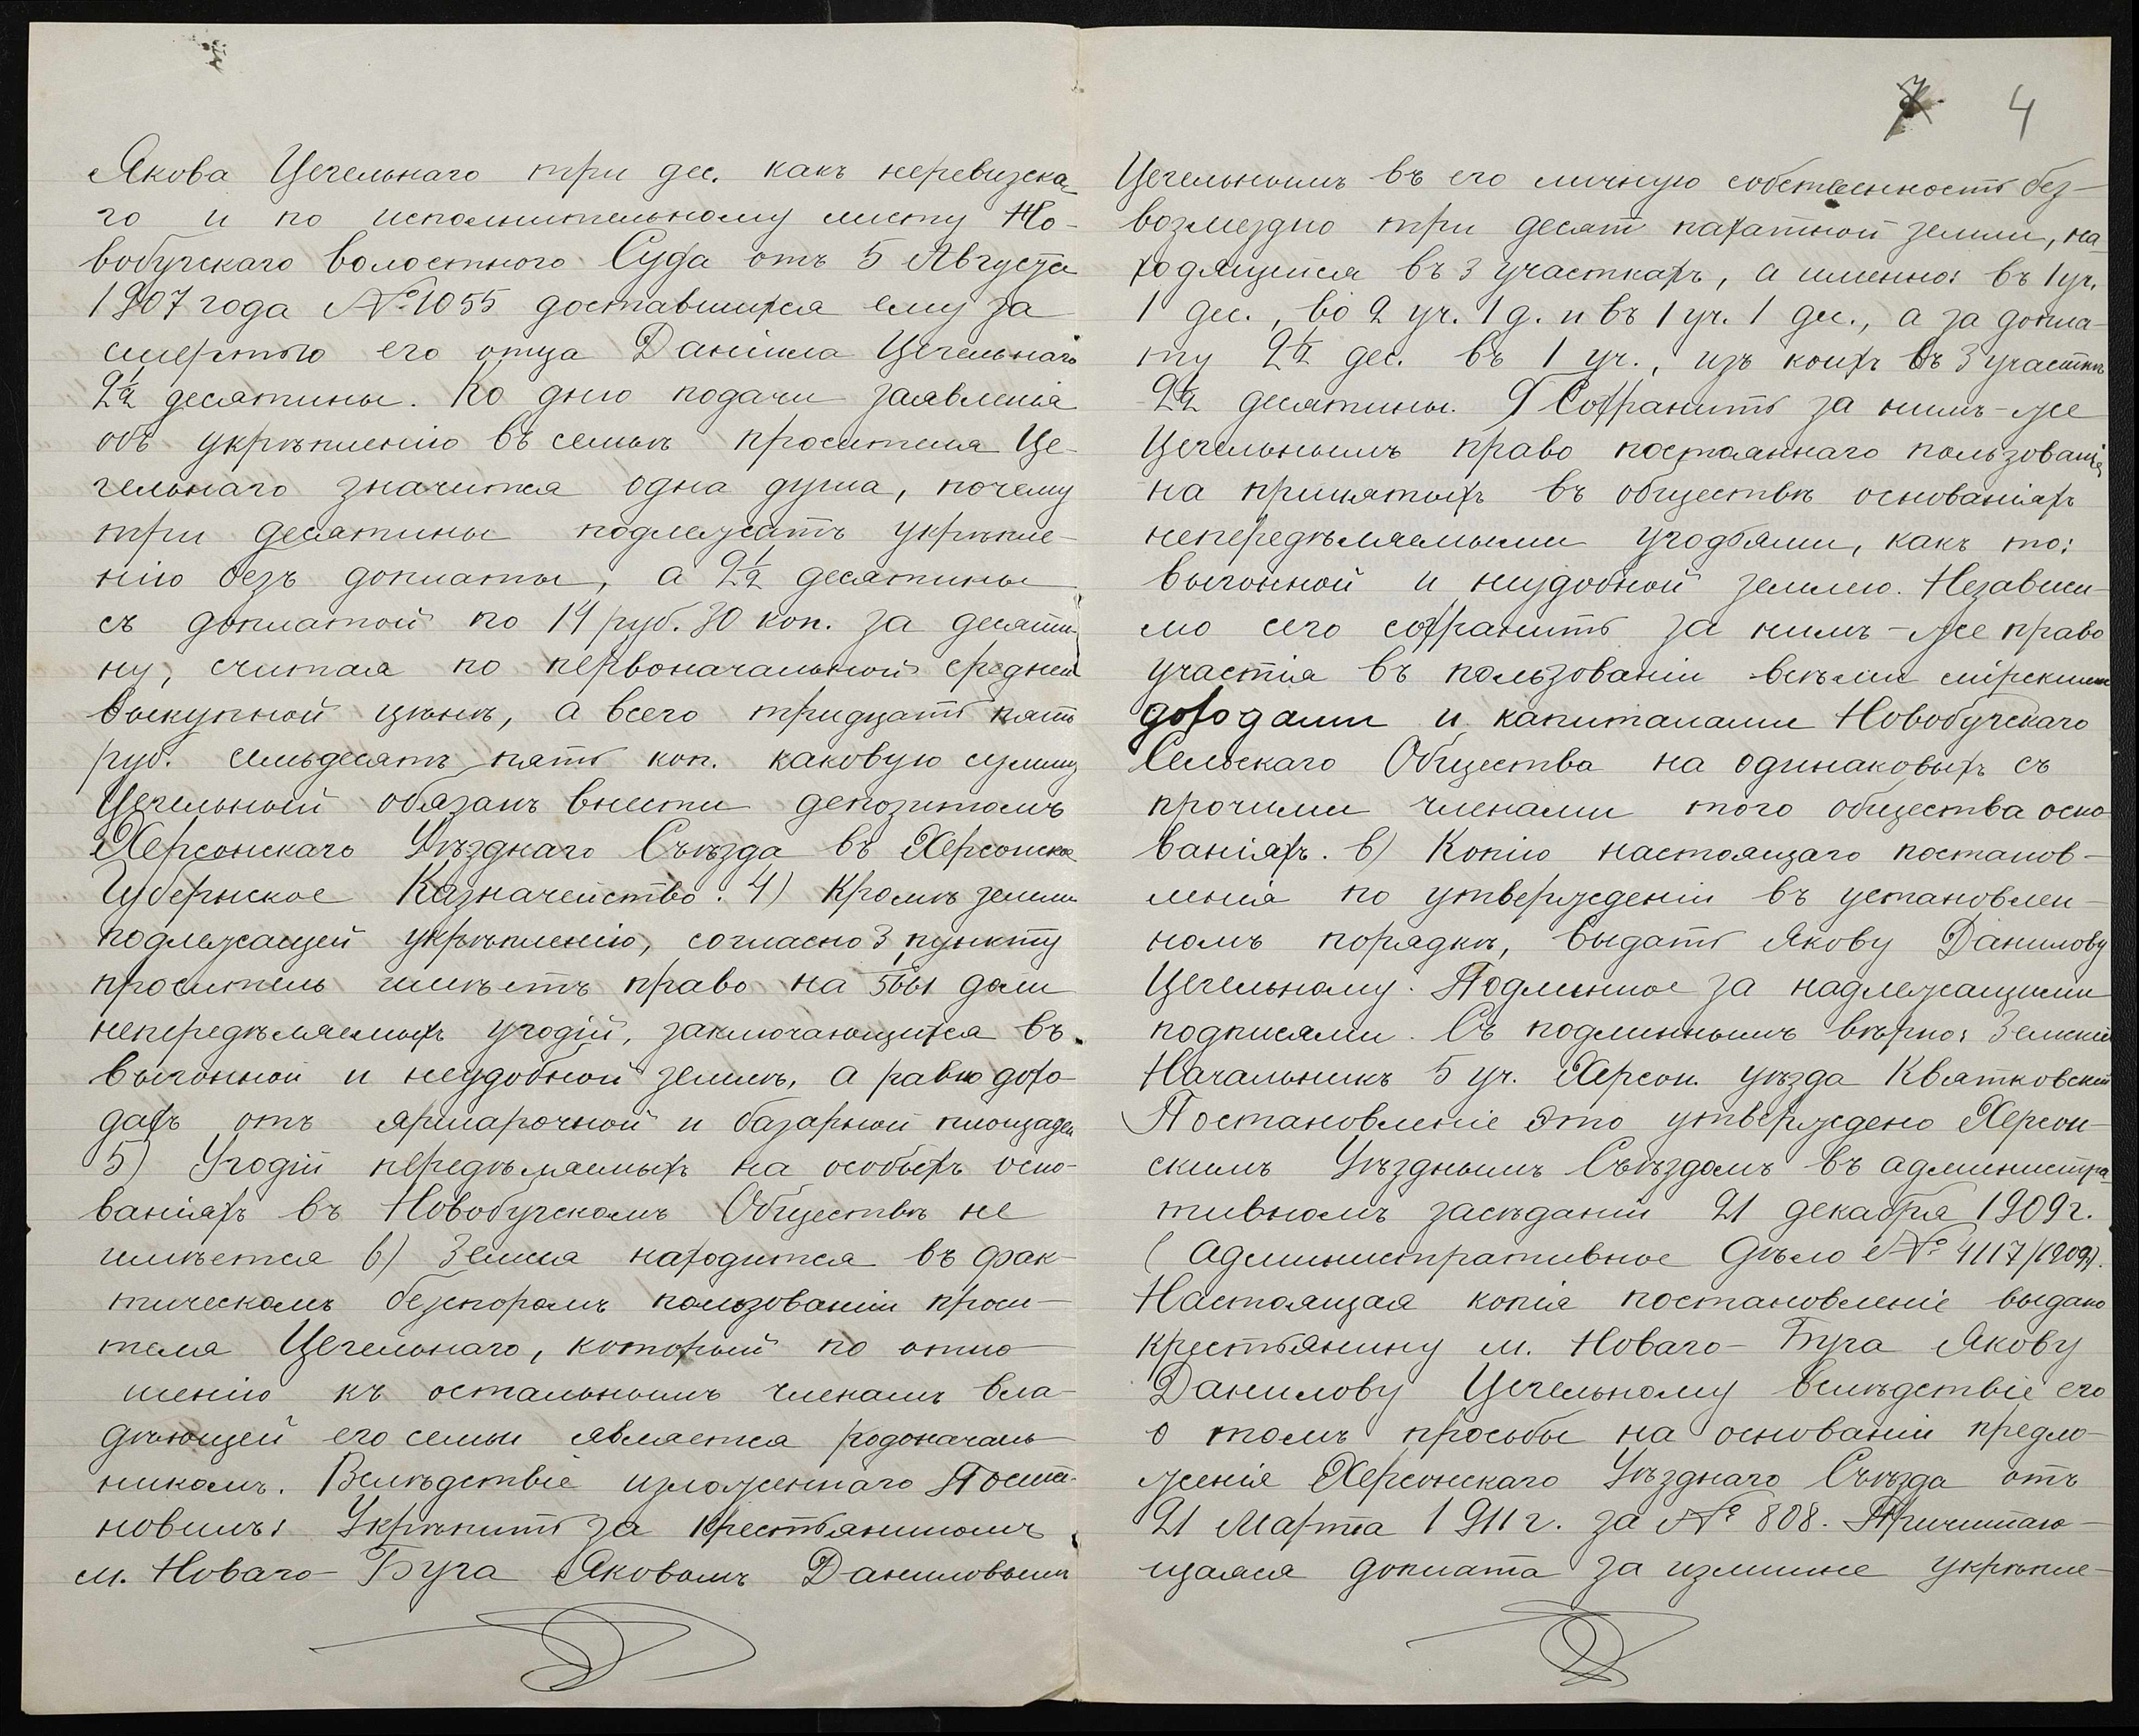 Якова Цегельнаго три дес. какъ неревизска-
го и по исполнительному листу Но-
вобугскаго Волостного Суда отъ 5 Августа
1907 года № 1055 доставшихся ему за
смертью его отца Даніила Цегельнаго
2½ десятины. Ко дню подачи заявленія
объ укрѣпленію въ семьѣ просителя Це-
гельнаго значится одна душа, почему
три десятины подлежатъ укрѣпле-
нію безъ доплаты, а 2½ десятины
съ доплатой по 14 руб. 30 коп. за десяти-
ну, считая по первоначальной средней
выкупной цѣнѣ, а всего тридцать пять
руб. семьдесятъ пять коп. каковую сумму
Цегельный обязанъ внести депозитомъ
Херсонскаго Уѣзднаго Съѣзда въ Херсонское
Губернское Казначейство. 4) Кромѣ земли
подлежащей укрѣпленію, согласно 3 пункту
проситель имѣетъ право на доли
непередѣляемыхъ угодій, заключающихся въ
выгонной и неудобной землѣ, а равно дохо-
дахъ отъ ярмарочной и базарной площадей
5) Угодій передѣляемыхъ на особыхъ осно-
ваніяхъ въ Новобугскомъ Обществѣ не
имѣется 6) Земля находится въ фак-
тическомъ безспоромъ пользованіи проси-
теля Цегельнаго, который по отно-
шенію къ остальнымъ членамъ вла-
дѣющей его семьи является родоначаль-
никомъ. Вслѣдствіе изложеннаго Поста-
новилъ: Укрѣпить за крестьяниномъ
м. Новаго-Буга Яковомъ Даниловымъ
7 4
Цегельнымъ въ его личную собственность без-
возмездно три десят пахатной земли, на-
ходящейся въ 3 участкахъ, а именно: въ 1 уч.
1 дес., во 2 уч. 1 д. и въ 1 уч. 1 дес., а за допла-
ту 2½ дес. въ 1 уч., изъ коихъ въ 3 участкѣ
2½ десятины. Сохранить за нимъ-же
Цегельнымъ право постояннаго пользованія
на принятыхъ въ обществѣ основаніяхъ
непередѣляемыми угодьями, какъ то:
выгонной и неудобной землею. Независи-
мо сего сохранить за нимъ-же право
участія въ пользованіи всѣми мірскими
доходами и капиталами Новобугскаго
Сельскаго Общества на одинаковыхъ съ
прочими членами того общества осно-
ваніяхъ. в) Копію настоящаго постанов-
ленія по утвержденіи въ установлен-
номъ порядкѣ, выдать Якову Данилову
Цегельному. Подлинное за надлежащими
подписями. Съ подлиннымъ вѣрно: Земскій
Начальникъ 5 уч. Херсон. уѣзда Квятковскій
Постановленіе это утверждено Херсон-
скимъ Уѣзднымъ Съѣздомъ въ администра-
тивномъ засѣданіи 21 декабря 1909 г.
(Административное дѣло № 4117/1909).
Настоящая копія постановленіе выдано
крестьянину м. Новаго-Буга Якову
Данилову Цегельному вслѣдствіе его
о томъ просьбы на основаніи предло-
женія Херсонскаго Уѣзднаго Съѣзда отъ
21 Марта 1911 г. за № 808. Причитаю-
щаяся доплата за излишне укрѣпле-